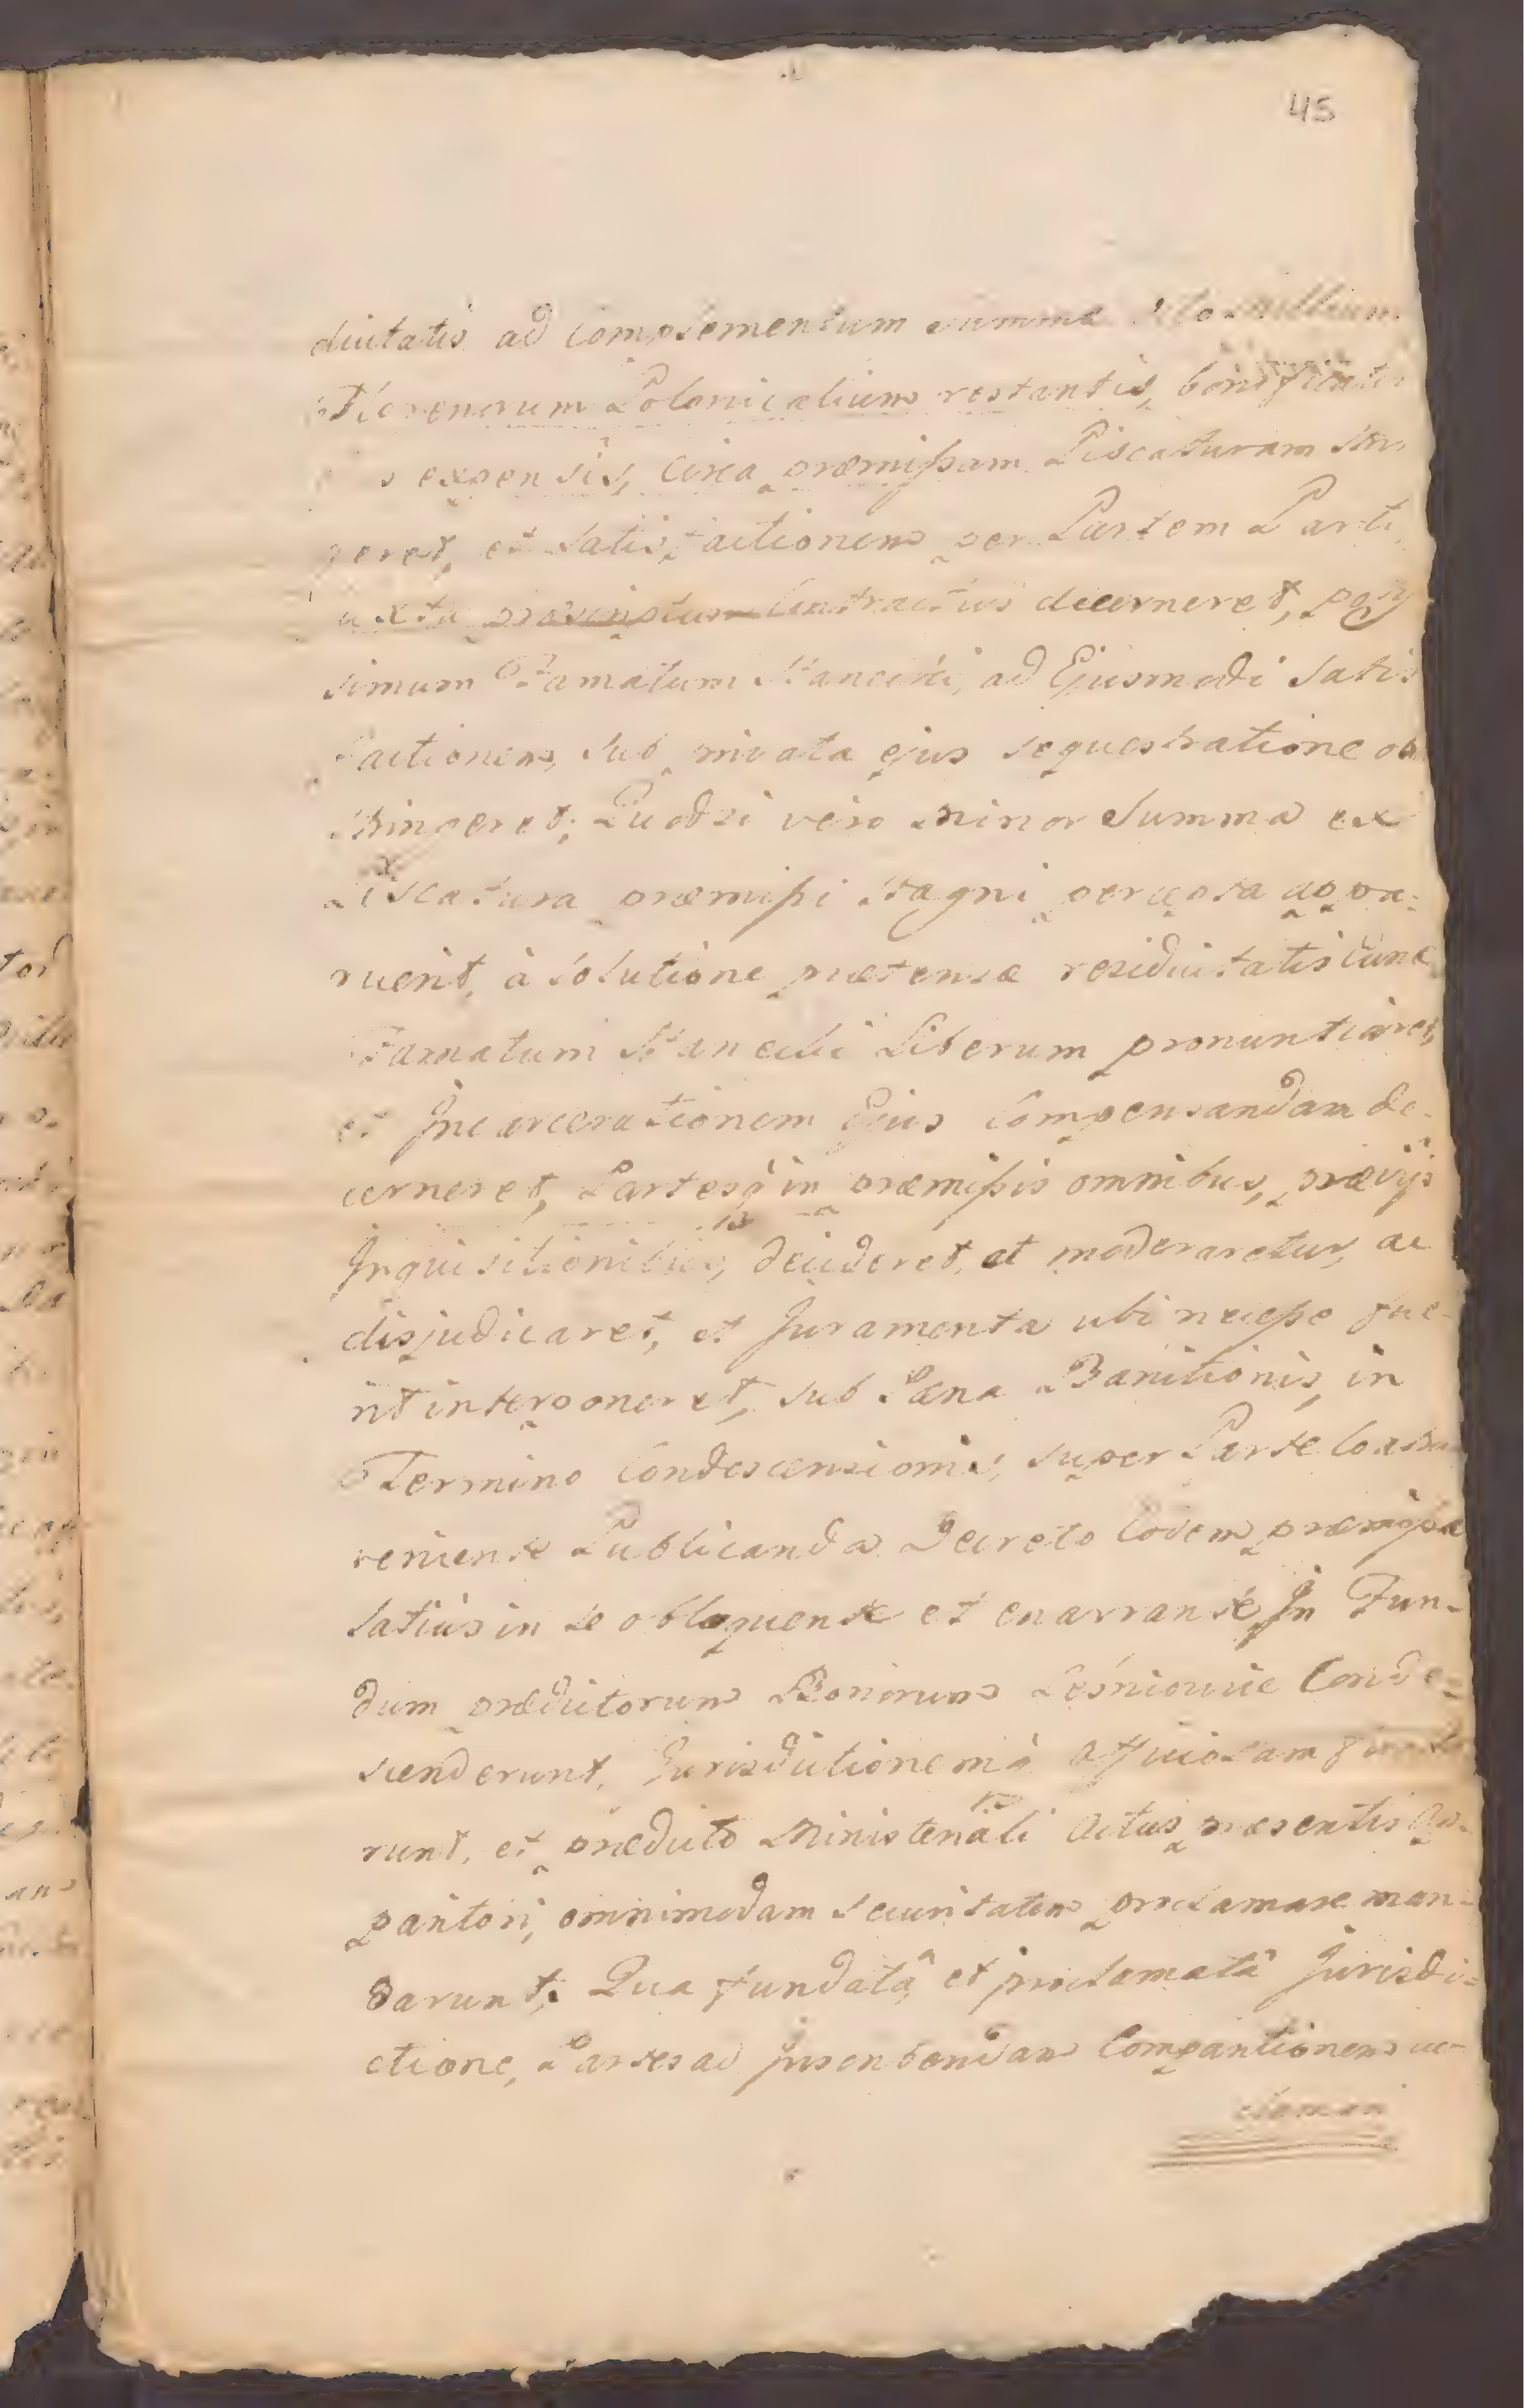 45
duitatis ad complementum summæ Octo millium
Florenorum Polonicalium restantis, bonificatis
expensis, circa præmissam Piscaturam
et Satisfactionem per Partem Parti
uxta præscriptum Contractus decerneret,
simum Famatum Hanecki, ad Ejusmodi Satis
factionem, sub privata ejus sequestratione
stringeret; Quodsi vero minor Summa ex
Piscatura præmissi Stagni percepta appa-
ruerit, à solutione prætensæ residuitatis tunc
Famatum Hanecki Liberum pronuntiaret,
et Incarcerationem Ejus Compensandam de-
cerneret, Partesq́ in præmissis omnibus, prævijs
Inquisitionibus, decideret, et moderaretur, ac
disjudicaret, et Juramenta ubi necesse fue-
rit interponeret, sub Pæna Banitionis, in
Termino Condescensionis, super Parte Contra
veniente Publicanda Decreto Eodem præmissa
latius in se obloquente et enarrante, In Fun-
dum prædictorum Bonorum Leśniowice Conde-
scenderunt, Jurisdictionemq́ Officiosam
runt, et prædicto Ministeriali Actus præsentis Com-
pantori, omnimodam securitatem proclamare man-
darunt; Qua fundatâ, et proclamatâ Jurisdi-
ctione, Partes ad Inscribendam Comparitionem
clamari